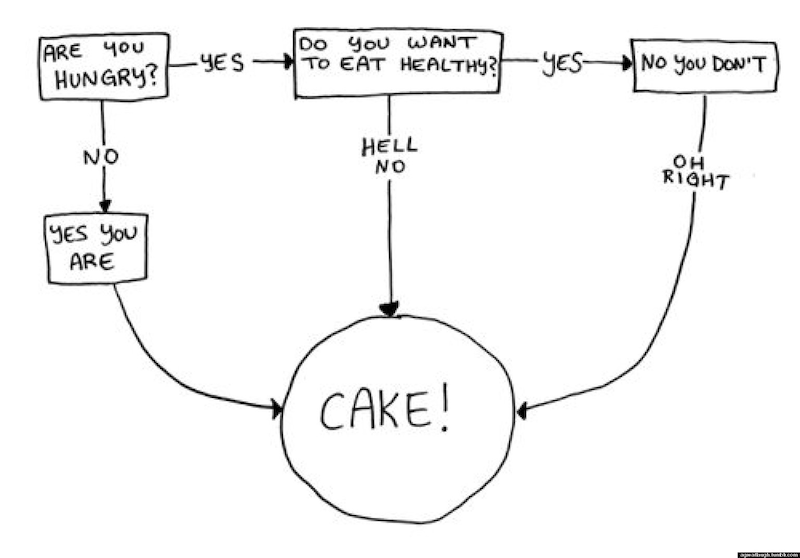 ARE YOU
HUNGRY?
YES
DO YOU WANT
TO EAT HEALTHY?
YES
NO YOU DON'T
NO
HELL
NO
OH
RIGHT
YES YOU
ARE
CAKE!